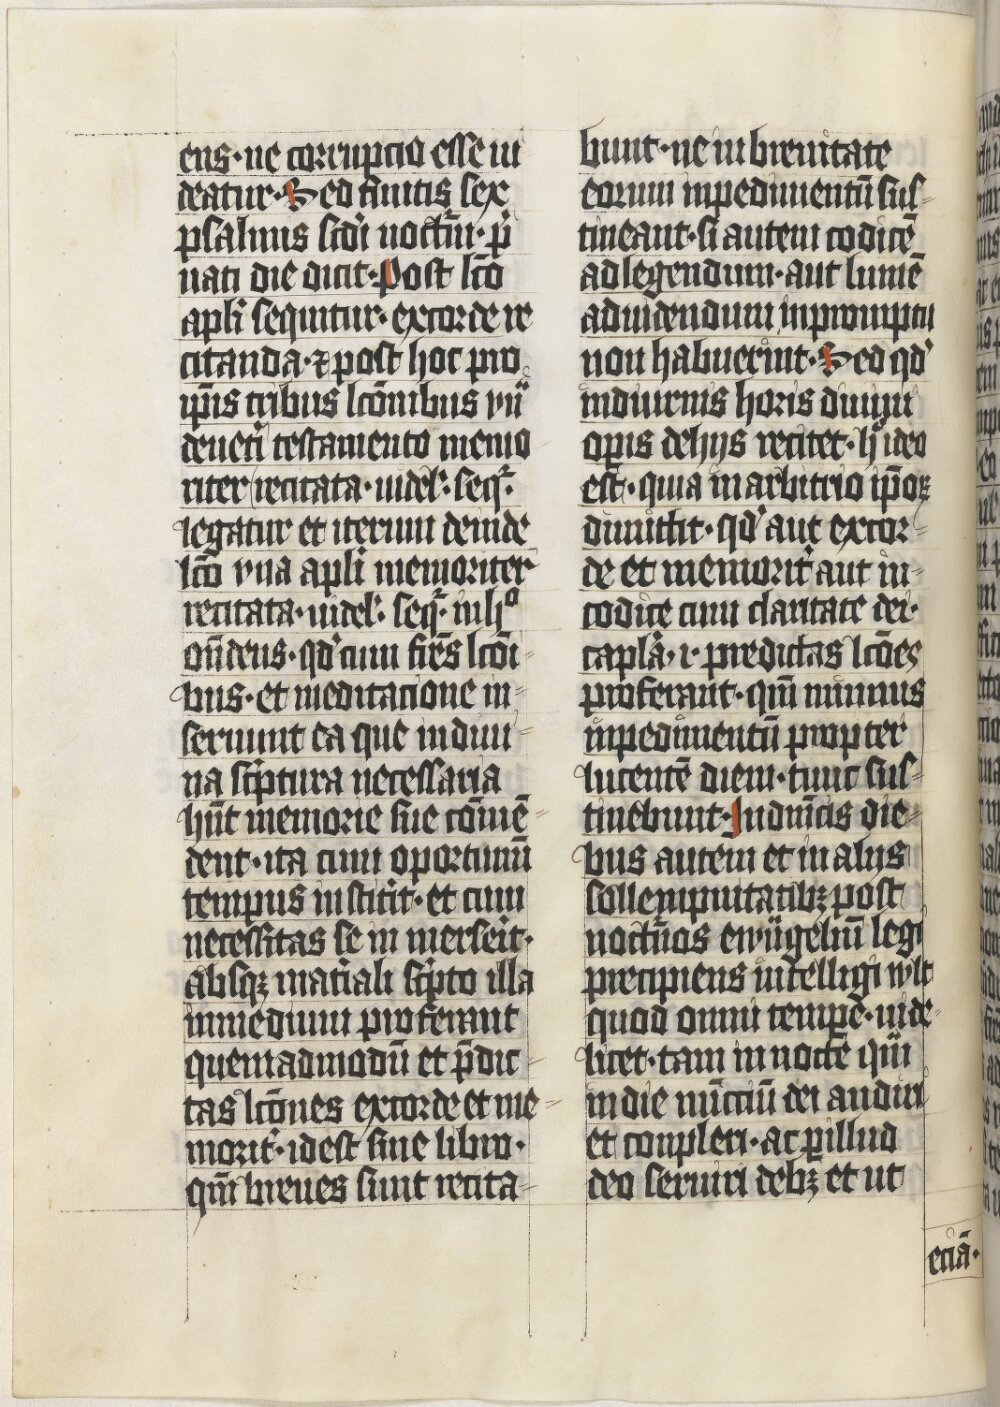 ens · ne corrupcio esse ui
deatur · Sed finitis sex
psalmis scd̓i noctn̄i · p̄
nati die dicit · Post lcō
apl̓i sequitur · ex corde re
citanda · ⁊ post hoc pro
ip̄is tribus lcōnibus vn̄
de uet̓i testamento memo
riter recitata · uidel̓ · seq̄r ·
legatur et iterum deinde
lcō vna apl̓i memoriter
recitata · uidel̓ · seq̄r · in hͦ
on̄dens · qd̓ cum fr̄es lcōi
bus · et meditacione in-
seruiunt ea que in diui-
na sc̓ptura necessaria
hn̄t memorie sue cōmē-
dent · ita cum oportunū
tempus institit · et cum
necessitas se in merser̓it ·
absqꝫ mat̓iali sc̓pto illa
in medium proferant
quemadmodū et p̄dic-
tas lcōnes ex corde et me-
morit̓ · id est sine libro ·
qm̄ breues sunt recita-
bunt · ne in breuitate
eorum inpedimentū sus-
tineant · si autem codicē
ad legendum · aut lumē
ad uidendum in promptu
non habuerint · Sed qd̓
in diurnis horis diuini
op̓is de hijs recitet · h̓ ideo
est · quia in arbitrio ip̄oꝝ
dimittit · qd̓ aut ex cor-
de et memorit̓ aut in-
codice cum claritate dei ·
capl̓a · i · predictas lcōes
proferant · qm̄ minus
inpedimentū propter
lucentē diem · tunc sus-
tinebunt · In dn̄icis die-
bus autem et in alijs
sollempnitatibꝫ post
noctn̄os ewāgeliū legi
precipiens intelligi wlt
quod omni tempe · uide-
licet · tam in nocte qm̄
in die nūcciū dei audiri
et conpleri · ac ꝑ illud
deo seruiri debꝫ et ut
eciā ·